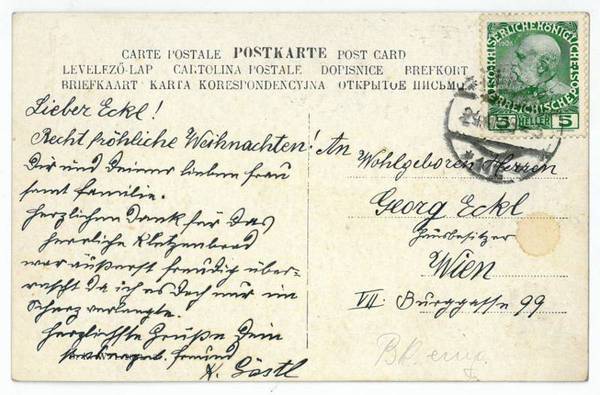 CARTE POSTALE POSTKARTE POST CARD
LEVELEZŐ-LAP CARTOLINA POSTALE DOPISNICE BREFKORT
BRIEFKAART KARTA KORESPONDENCYJNA ОТКРЫТОЕ ПИСЬМО
KAISERLICHEKÖNIGLICHE
ÖSTERREICHISCHE
5 HELLER 5
Lieber Eckl!
Recht fröhliche Weihnachten!
Dir und Deiner lieben Frau
samt Familie.
Herzlichen Dank für das
herrliche Kletzenbrod
war äußerst freudig über-
rascht da ich es doch nur im
Scherz verlangte.
Herzlichste Grüße Dein
Freund
K. Göstl
An
Wohlgeboren Herren
Georg Eckl
Hausbesitzer
Wien
VII. Burggasse 99